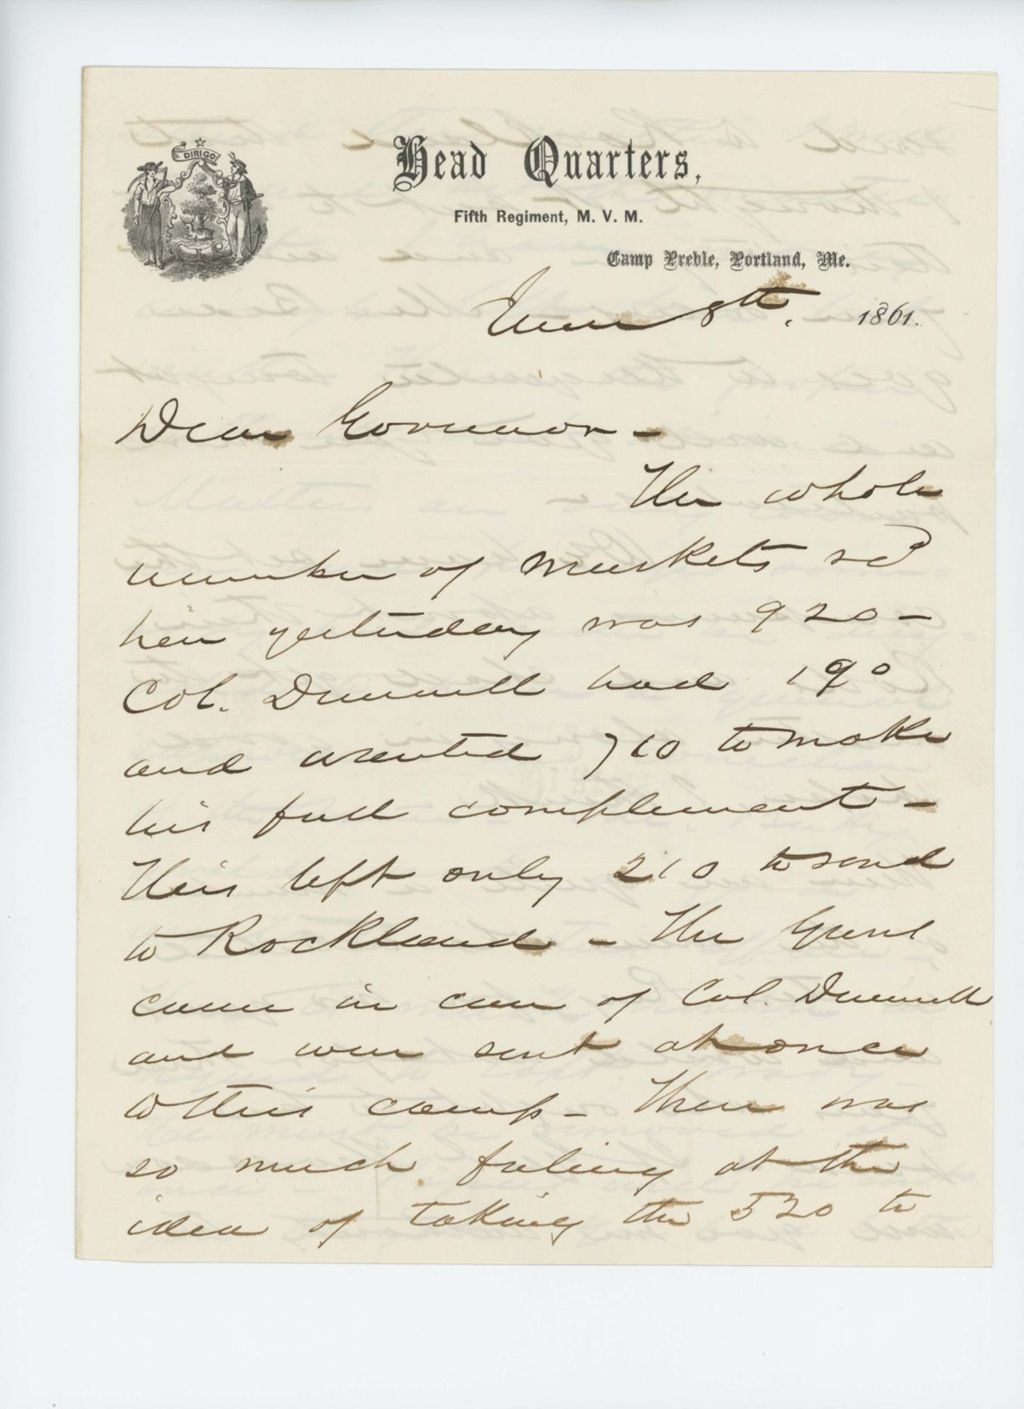 DIRIGO
Head Quarters,
Fifth Regiment, M. V. M.
Camp Preble, Portland, Me.
June 8th. 1861.
Dear Governor –
The whole
number of muskets rcd
here yesterday was 920 –
Col. Dunnell had 190
and wanted 710 to make
his full complement –
This left only 210 to send
to Rockland – The Guns
came in care of Col. Dunnell
and were sent at once
to this camp – There was
so much feeling at the
idea of taking the 520 to